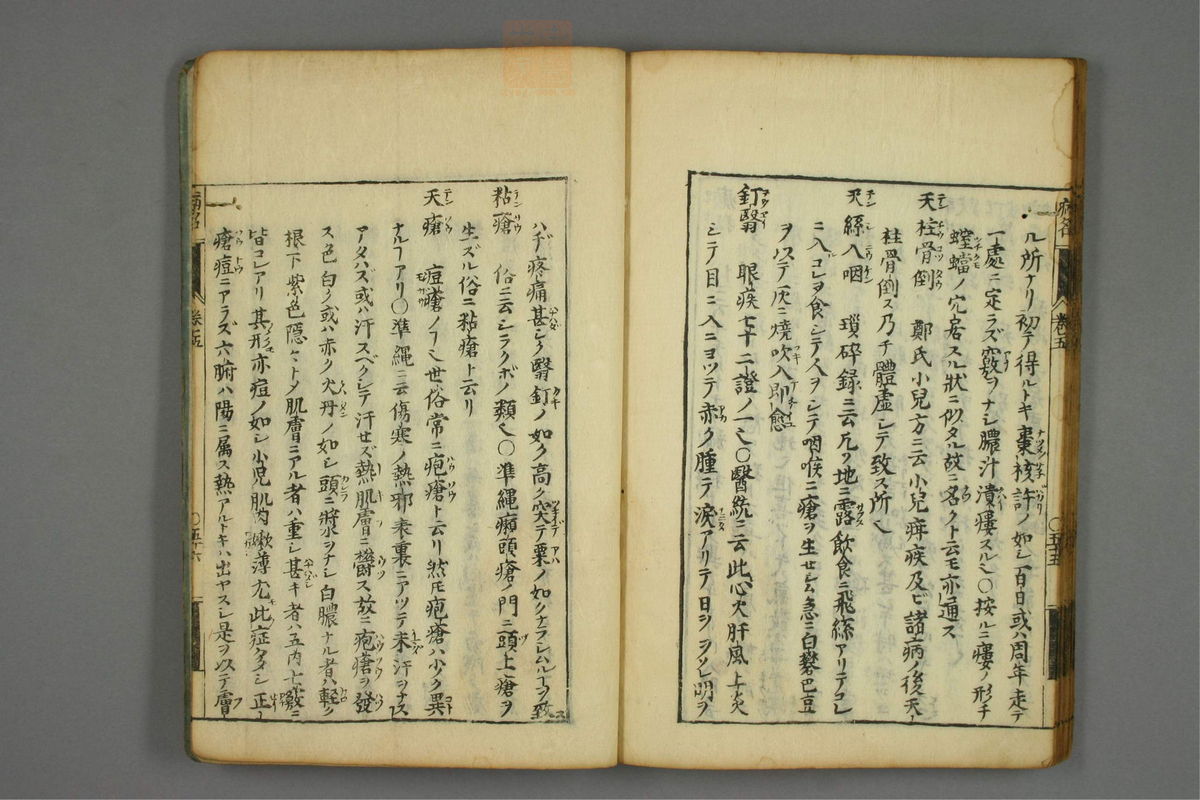 ル所ナリ初テ得ルトキ棗核許ノ如シ百日或ハ周年走テ
一處ニ定ラズ竅ヲナシ膿汁潰瘻スル〇按ルニ瘻ノ形チ
螳蟷ノ穴居スル狀ニ似タル故ニ名クト云モ亦通ス
天柱骨倒 鄭氏小兒方ニ云小兒疳疾及ビ諸病ノ後天
柱骨倒ス乃チ體虚シテ致ス所
天絲入咽 瑣碎録ニ云凡ヲ地ニ露飲食ニ飛絲アリテコレ
ニ入コレヲ食シテ人ヲシテ咽喉ニ瘡ヲ生セシム急ニ白礬巴豆
ヲ以テ灰ニ燒吹入即愈
釘翳 眼疾七十二證ノ一〇醫統ニ云此心火肝風上炎
シテ目ニ入ニヨツテ赤ク腫テ淚アリテ日ヲヲソレ明ヲ
ハヂ疼痛甚シク翳釘ノ如ク高ク突テ粟ノ如クナラシムルヿヲ致
粘瘡 俗ニ云シラクボノ類〇準縄癩頭瘡ノ門ニ頭上瘡ヲ
生ズル俗ニ粘瘡ト云リ
天瘡 痘瘡ノヿ世俗常ニ疱瘡ト云リ然ㇳモ疱瘡ハ少ク異
ナルヿアリ〇準縄ニ云傷寒ノ熱邪表裏ニアツテ未汗ヲナス
アタハズ或ハ汗スベクシテ汗セズ熱肌膚ニ欝ス故ニ疱瘡ヲ發
ス色白ク或ハ赤ク火丹ノ如シ頭ニ漿ヲナシ白膿ナル者ハ輕ク
根下紫色隱々トメ肌膚ニアル者ハ重シ甚キ者ハ五内七竅ニ
皆コレアリ其形亦痘ノ如シ小兒肌肉嫩薄尤此症多シ正
瘡痘ニアラズ六腑ハ陽ニ属ス熱アルトキハ出ヤスシ是ヲ以テ膚
病名
卷五
〇五十五
病名
卷五
〇五十六